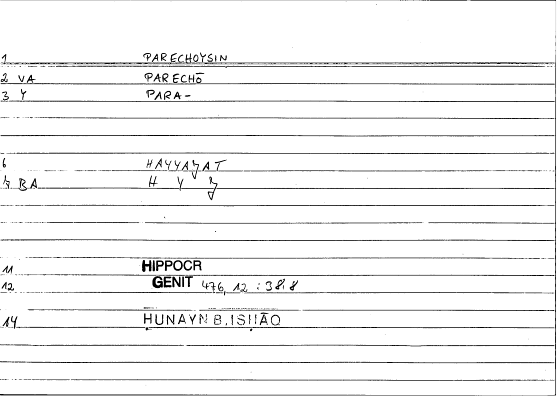 1 PARECHOYSIN
2 VA PARECHŌ
3 Y PARA-
6 HAYYAʾAT
7 BA H Y ʾ
11 HIPPOCR
12 GENIT 476, 12 : 38,8
14 ḤUNAYN B. ISḤĀQ